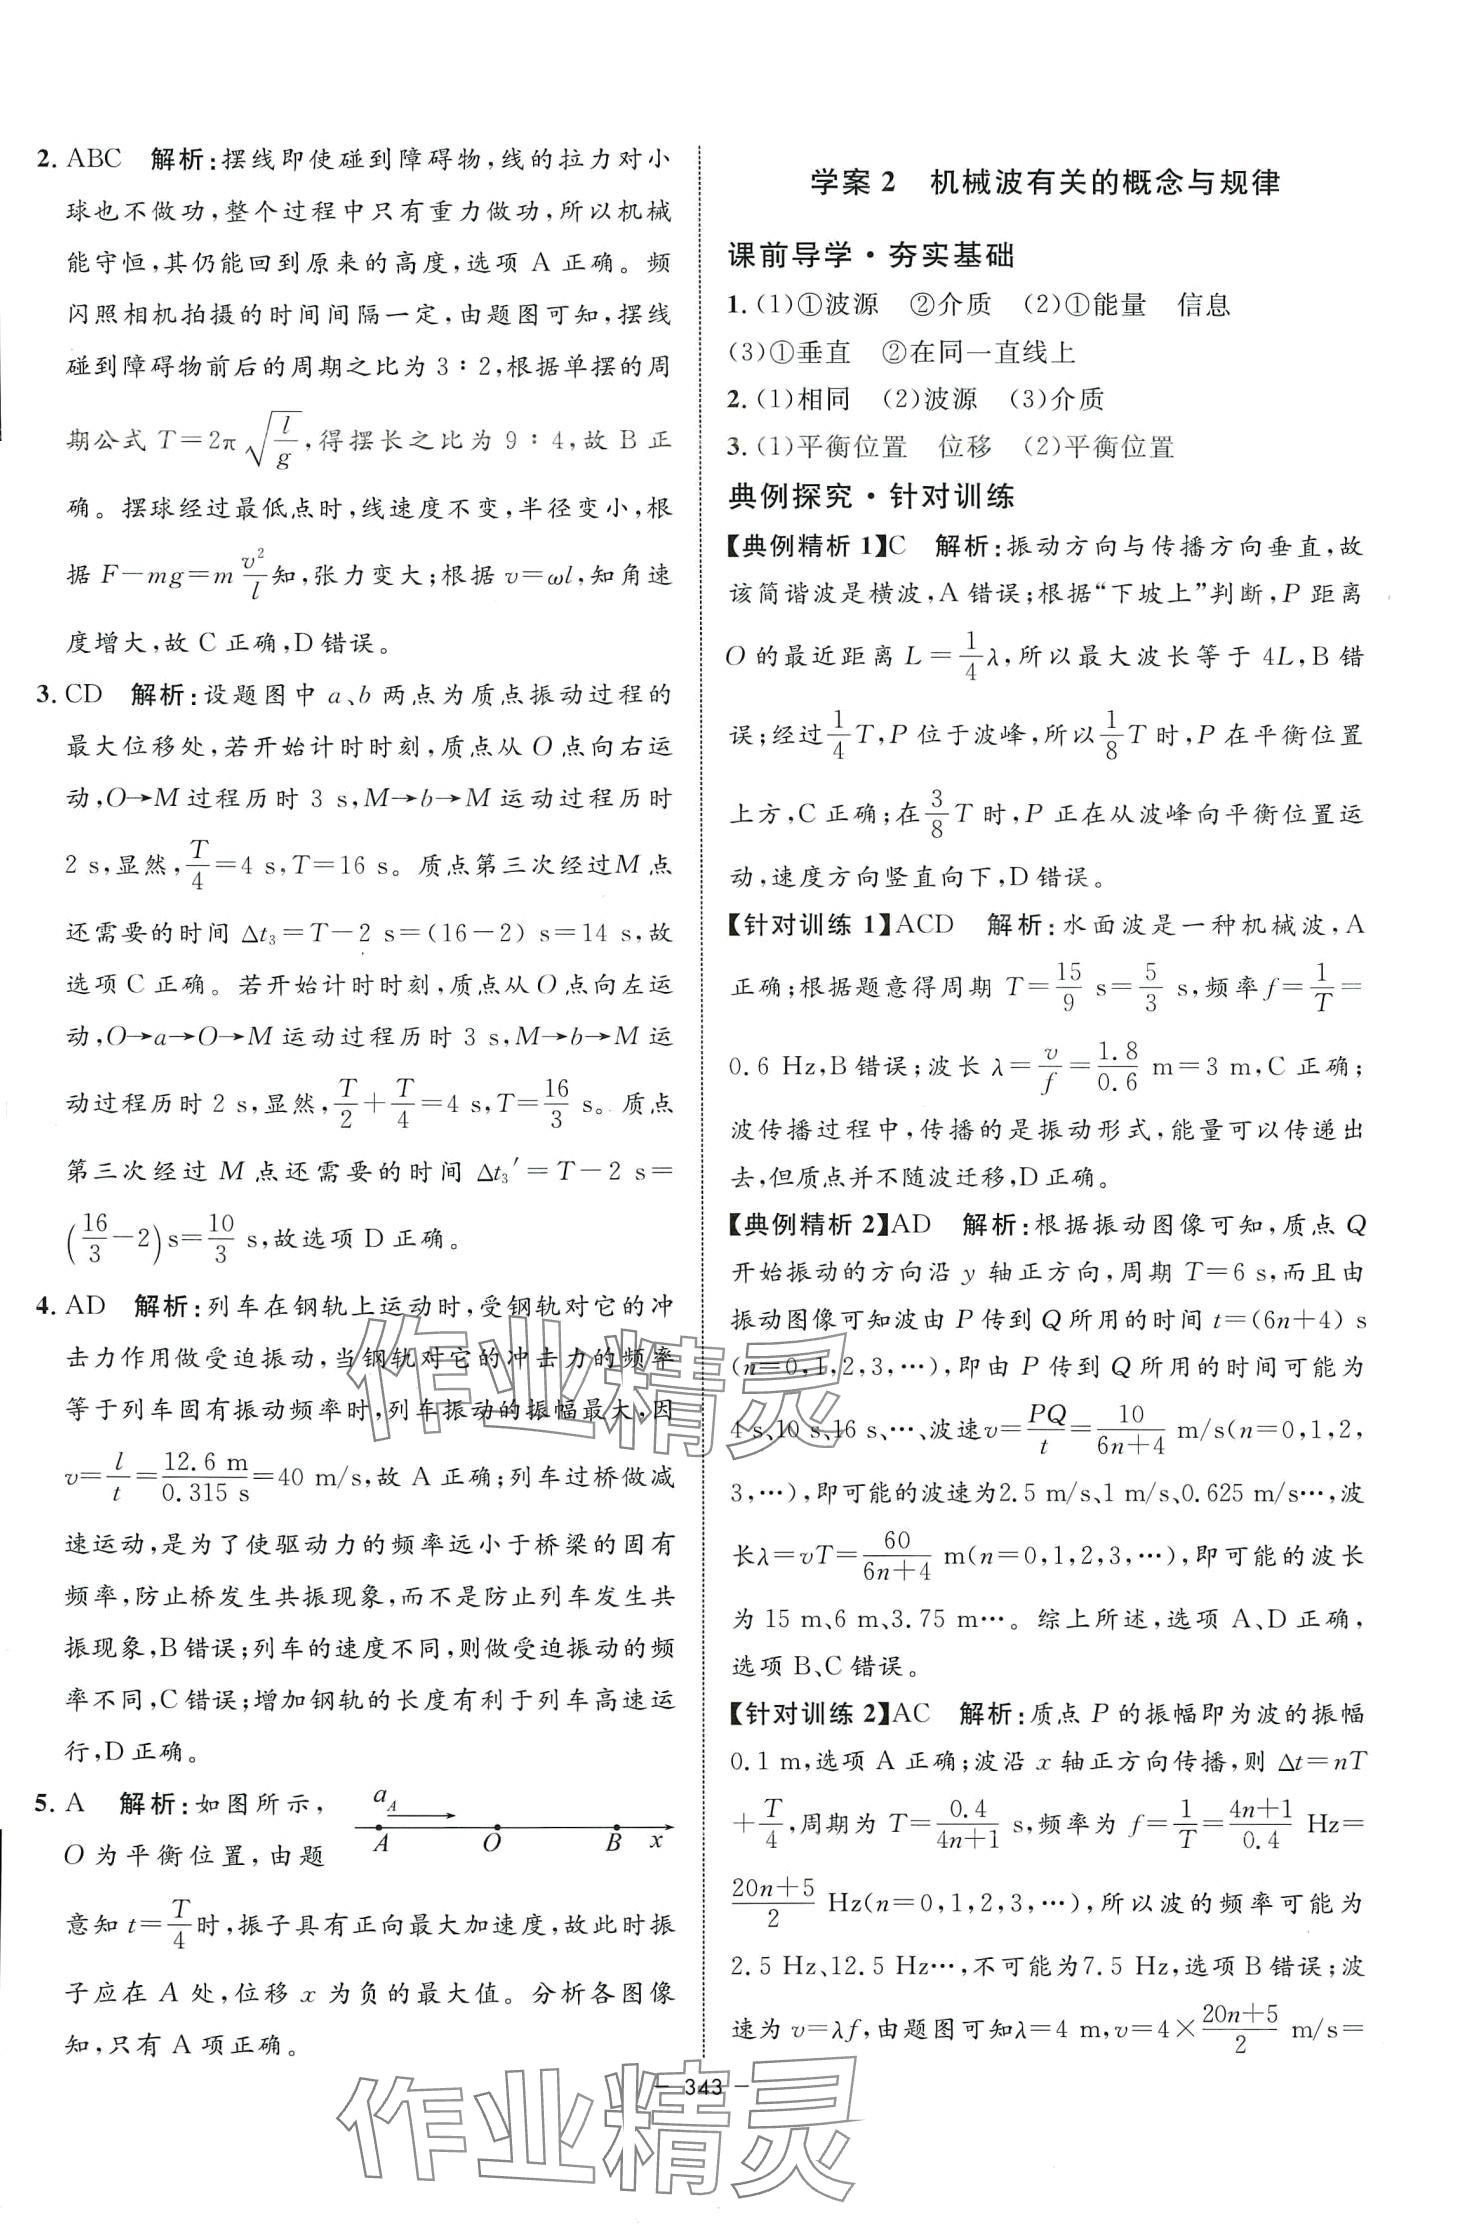 2. ABC　解析:摆线即使碰到障碍物,线的拉力对小
球也不做功,整个过程中只有重力做功,所以机械
能守恒,其仍能回到原来的高度,选项 A 正确。频
闪照相机拍摄的时间间隔一定,由题图可知,摆线
碰到障碍物前后的周期之比为 3∶2,根据单摆的周
期公式 T=2π√(l/g),得摆长之比为 9∶4,故 B 正
确。摆球经过最低点时,线速度不变,半径变小,根
据 F－mg=m v²/l 知,张力变大;根据 v=ωl,知角速
度增大,故 C 正确,D 错误。
3. CD　解析:设题图中 a、b 两点为质点振动过程的
最大位移处,若开始计时时刻,质点从 O 点向右运
动,O→M 过程历时 3 s,M→b→M 运动过程历时
2 s,显然,T/4=4 s,T=16 s。质点第三次经过M 点
还需要的时间 Δt₃=T－2 s=(16－2) s=14 s,故
选项 C 正确。若开始计时时刻,质点从O 点向左运
动,O→a→O→M 运动过程历时 3 s,M→b→M 运
动过程历时 2 s,显然,T/2+T/4=4 s,T=16/3 s。质点
第三次经过 M 点还需要的时间 Δt₃′=T－2 s=
(16/3－2)s=10/3 s,故选项 D 正确。
4. AD　解析:列车在钢轨上运动时,受钢轨对它的冲
击力作用做受迫振动,当钢轨对它的冲击力的频率
等于列车固有振动频率时,列车振动的振幅最大,因
v=l/t=12.6 m/0.315 s=40 m/s,故 A 正确;列车过桥做减
速运动,是为了使驱动力的频率远小于桥梁的固有
频率,防止桥发生共振现象,而不是防止列车发生共
振现象,B 错误;列车的速度不同,则做受迫振动的频
率不同,C 错误;增加钢轨的长度有利于列车高速运
行,D 正确。
5. A　解析:如图所示,
O 为平衡位置,由题
a_A
A O B x
意知 t=T/4时,振子具有正向最大加速度,故此时振
子应在 A 处,位移 x 为负的最大值。分析各图像
知,只有 A 项正确。
学案 2　机械波有关的概念与规律
课前导学·夯实基础
1. (1)①波源　②介质　(2)①能量　信息
(3)①垂直　②在同一直线上
2. (1)相同　(2)波源　(3)介质
3. (1)平衡位置　位移　(2)平衡位置
典例探究·针对训练
【典例精析 1】C　解析:振动方向与传播方向垂直,故
该简谐波是横波,A 错误;根据“下坡上”判断,P 距离
O 的最近距离 L=1/4λ,所以最大波长等于 4L,B 错
误;经过1/4T,P 位于波峰,所以1/8T 时,P 在平衡位置
上方,C 正确;在3/8T 时,P 正在从波峰向平衡位置运
动,速度方向竖直向下,D 错误。
【针对训练 1】ACD　解析:水面波是一种机械波,A
正确;根据题意得周期 T=15/9 s=5/3 s,频率 f=1/T=
0.6 Hz,B 错误;波长 λ=v/f=1.8/0.6 m=3 m,C 正确;
波传播过程中,传播的是振动形式,能量可以传递出
去,但质点并不随波迁移,D 正确。
【典例精析 2】AD　解析:根据振动图像可知,质点 Q
开始振动的方向沿 y 轴正方向,周期 T=6 s,而且由
振动图像可知波由 P 传到 Q 所用的时间 t=(6n+4) s
(n=0,1,2,3,…),即由 P 传到 Q 所用的时间可能为
4 s、10 s、16 s、…、波速v=PQ/t=10/(6n+4) m/s(n=0,1,2,
3,…),即可能的波速为2.5 m/s、1 m/s、0.625 m/s…,波
长λ=vT=60/(6n+4) m(n=0,1,2,3,…),即可能的波长
为 15 m、6 m、3.75 m…。综上所述,选项 A、D 正确,
选项 B、C 错误。
【针对训练 2】AC　解析:质点 P 的振幅即为波的振幅
0.1 m,选项 A 正确;波沿 x 轴正方向传播,则 Δt=nT
+T/4,周期为 T=0.4/(4n+1) s,频率为 f=1/T=(4n+1)/0.4 Hz=
(20n+5)/2 Hz(n=0,1,2,3,…),所以波的频率可能为
2.5 Hz、12.5 Hz…,不可能为7.5 Hz,选项 B 错误;波
速为 v=λf,由题图可知λ=4 m,v=4×(20n+5)/2 m/s=
－ 343 －
作业精灵
作业精灵